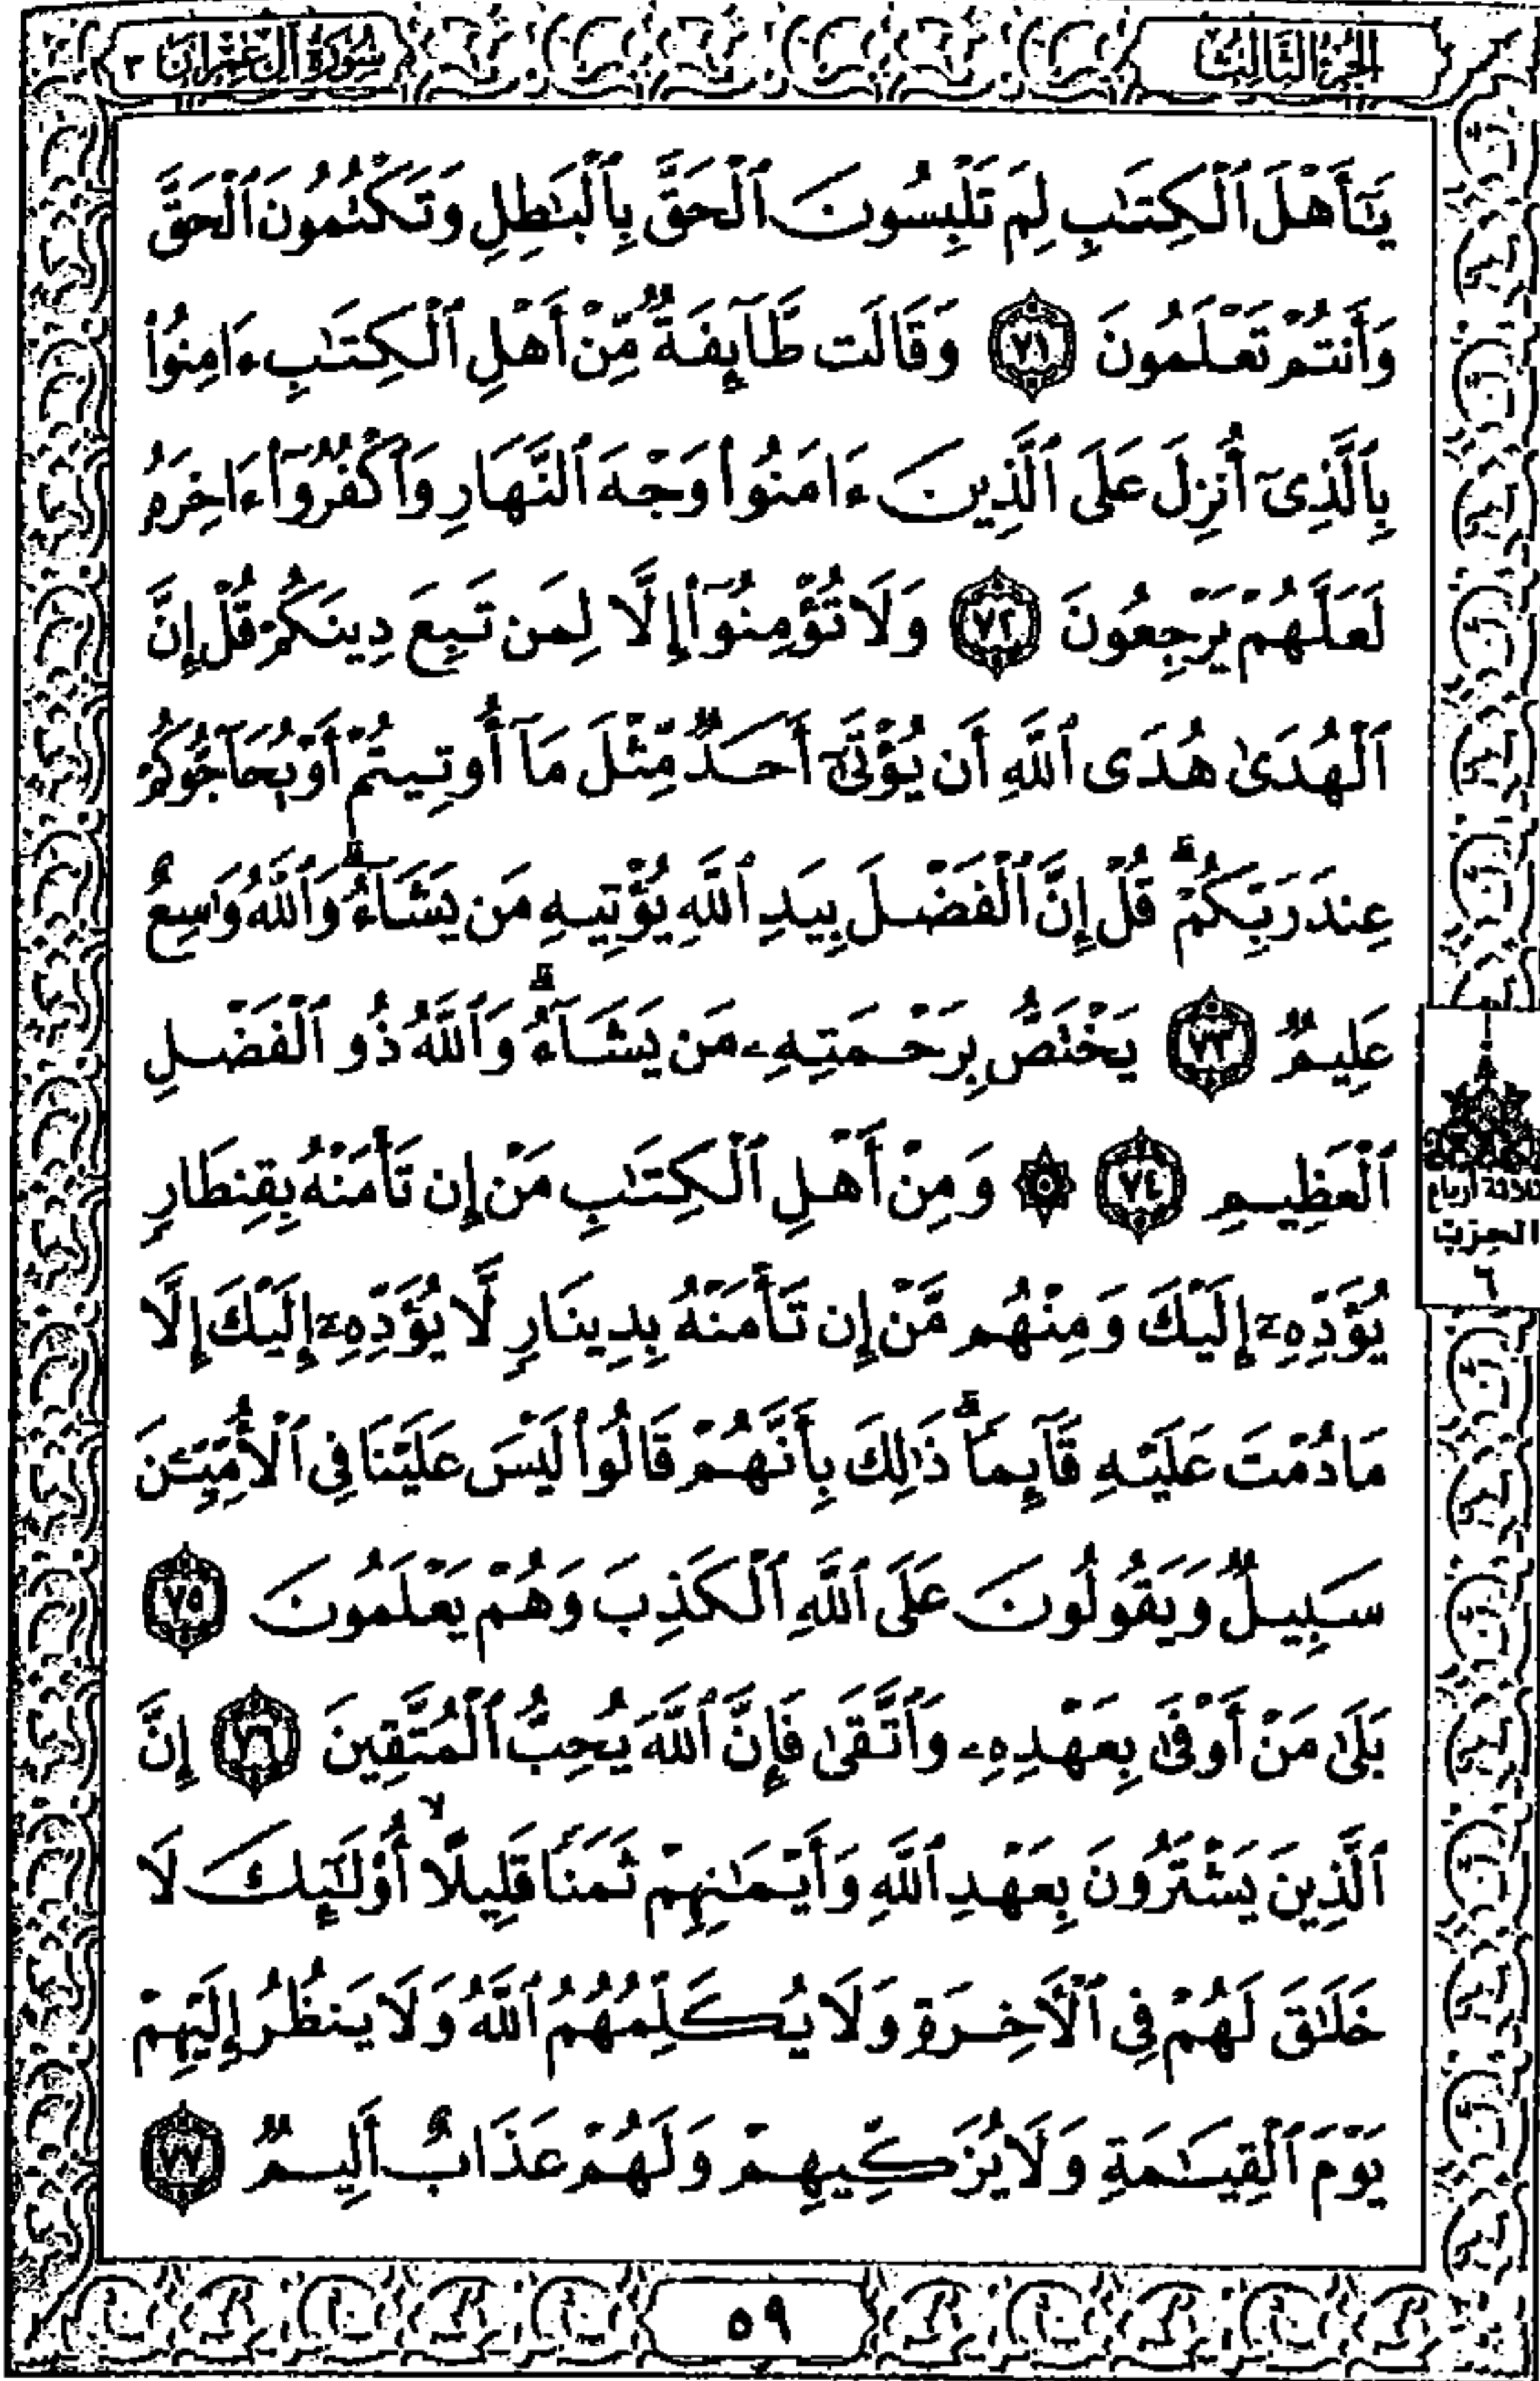 الجزء الثالث
سورة آل عمران ٣
يَٰٓأَهْلَ ٱلْكِتَٰبِ لِمَ تَلْبِسُونَ ٱلْحَقَّ بِٱلْبَٰطِلِ وَتَكْتُمُونَ ٱلْحَقَّ
وَأَنتُمْ تَعْلَمُونَ ٧١ وَقَالَت طَّآئِفَةٌ مِّنْ أَهْلِ ٱلْكِتَٰبِ ءَامِنُوا۟
بِٱلَّذِىٓ أُنزِلَ عَلَى ٱلَّذِينَ ءَامَنُوا۟ وَجْهَ ٱلنَّهَارِ وَٱكْفُرُوٓا۟ ءَاخِرَهُۥ
لَعَلَّهُمْ يَرْجِعُونَ ٧٢ وَلَا تُؤْمِنُوٓا۟ إِلَّا لِمَن تَبِعَ دِينَكُمْ قُلْ إِنَّ
ٱلْهُدَىٰ هُدَى ٱللَّهِ أَن يُؤْتَىٰٓ أَحَدٌ مِّثْلَ مَآ أُوتِيتُمْ أَوْ يُحَآجُّوكُمْ
عِندَ رَبِّكُمْ ۗ قُلْ إِنَّ ٱلْفَضْلَ بِيَدِ ٱللَّهِ يُؤْتِيهِ مَن يَشَآءُ ۗ وَٱللَّهُ وَٰسِعٌ
عَلِيمٌ ٧٣ يَخْتَصُّ بِرَحْمَتِهِۦ مَن يَشَآءُ ۗ وَٱللَّهُ ذُو ٱلْفَضْلِ
ٱلْعَظِيمِ ٧٤ ۞ وَمِنْ أَهْلِ ٱلْكِتَٰبِ مَنْ إِن تَأْمَنْهُ بِقِنطَارٍ
يُؤَدِّهِۦٓ إِلَيْكَ وَمِنْهُم مَّنْ إِن تَأْمَنْهُ بِدِينَارٍ لَّا يُؤَدِّهِۦٓ إِلَيْكَ إِلَّا
مَا دُمْتَ عَلَيْهِ قَآئِمًا ۗ ذَٰلِكَ بِأَنَّهُمْ قَالُوا۟ لَيْسَ عَلَيْنَا فِى ٱلْأُمِّيِّۦنَ
سَبِيلٌ وَيَقُولُونَ عَلَى ٱللَّهِ ٱلْكَذِبَ وَهُمْ يَعْلَمُونَ ٧٥
بَلَىٰ مَنْ أَوْفَىٰ بِعَهْدِهِۦ وَٱتَّقَىٰ فَإِنَّ ٱللَّهَ يُحِبُّ ٱلْمُتَّقِينَ ٧٦ إِنَّ
ٱلَّذِينَ يَشْتَرُونَ بِعَهْدِ ٱللَّهِ وَأَيْمَٰنِهِمْ ثَمَنًا قَلِيلًا ۙ أُو۟لَٰٓئِكَ لَا
خَلَٰقَ لَهُمْ فِى ٱلْءَاخِرَةِ وَلَا يُكَلِّمُهُمُ ٱللَّهُ وَلَا يَنظُرُ إِلَيْهِمْ
يَوْمَ ٱلْقِيَٰمَةِ وَلَا يُزَكِّيهِمْ وَلَهُمْ عَذَابٌ أَلِيمٌ ٧٧
ثلاثة أرباع
الحزب
٦
٥٩